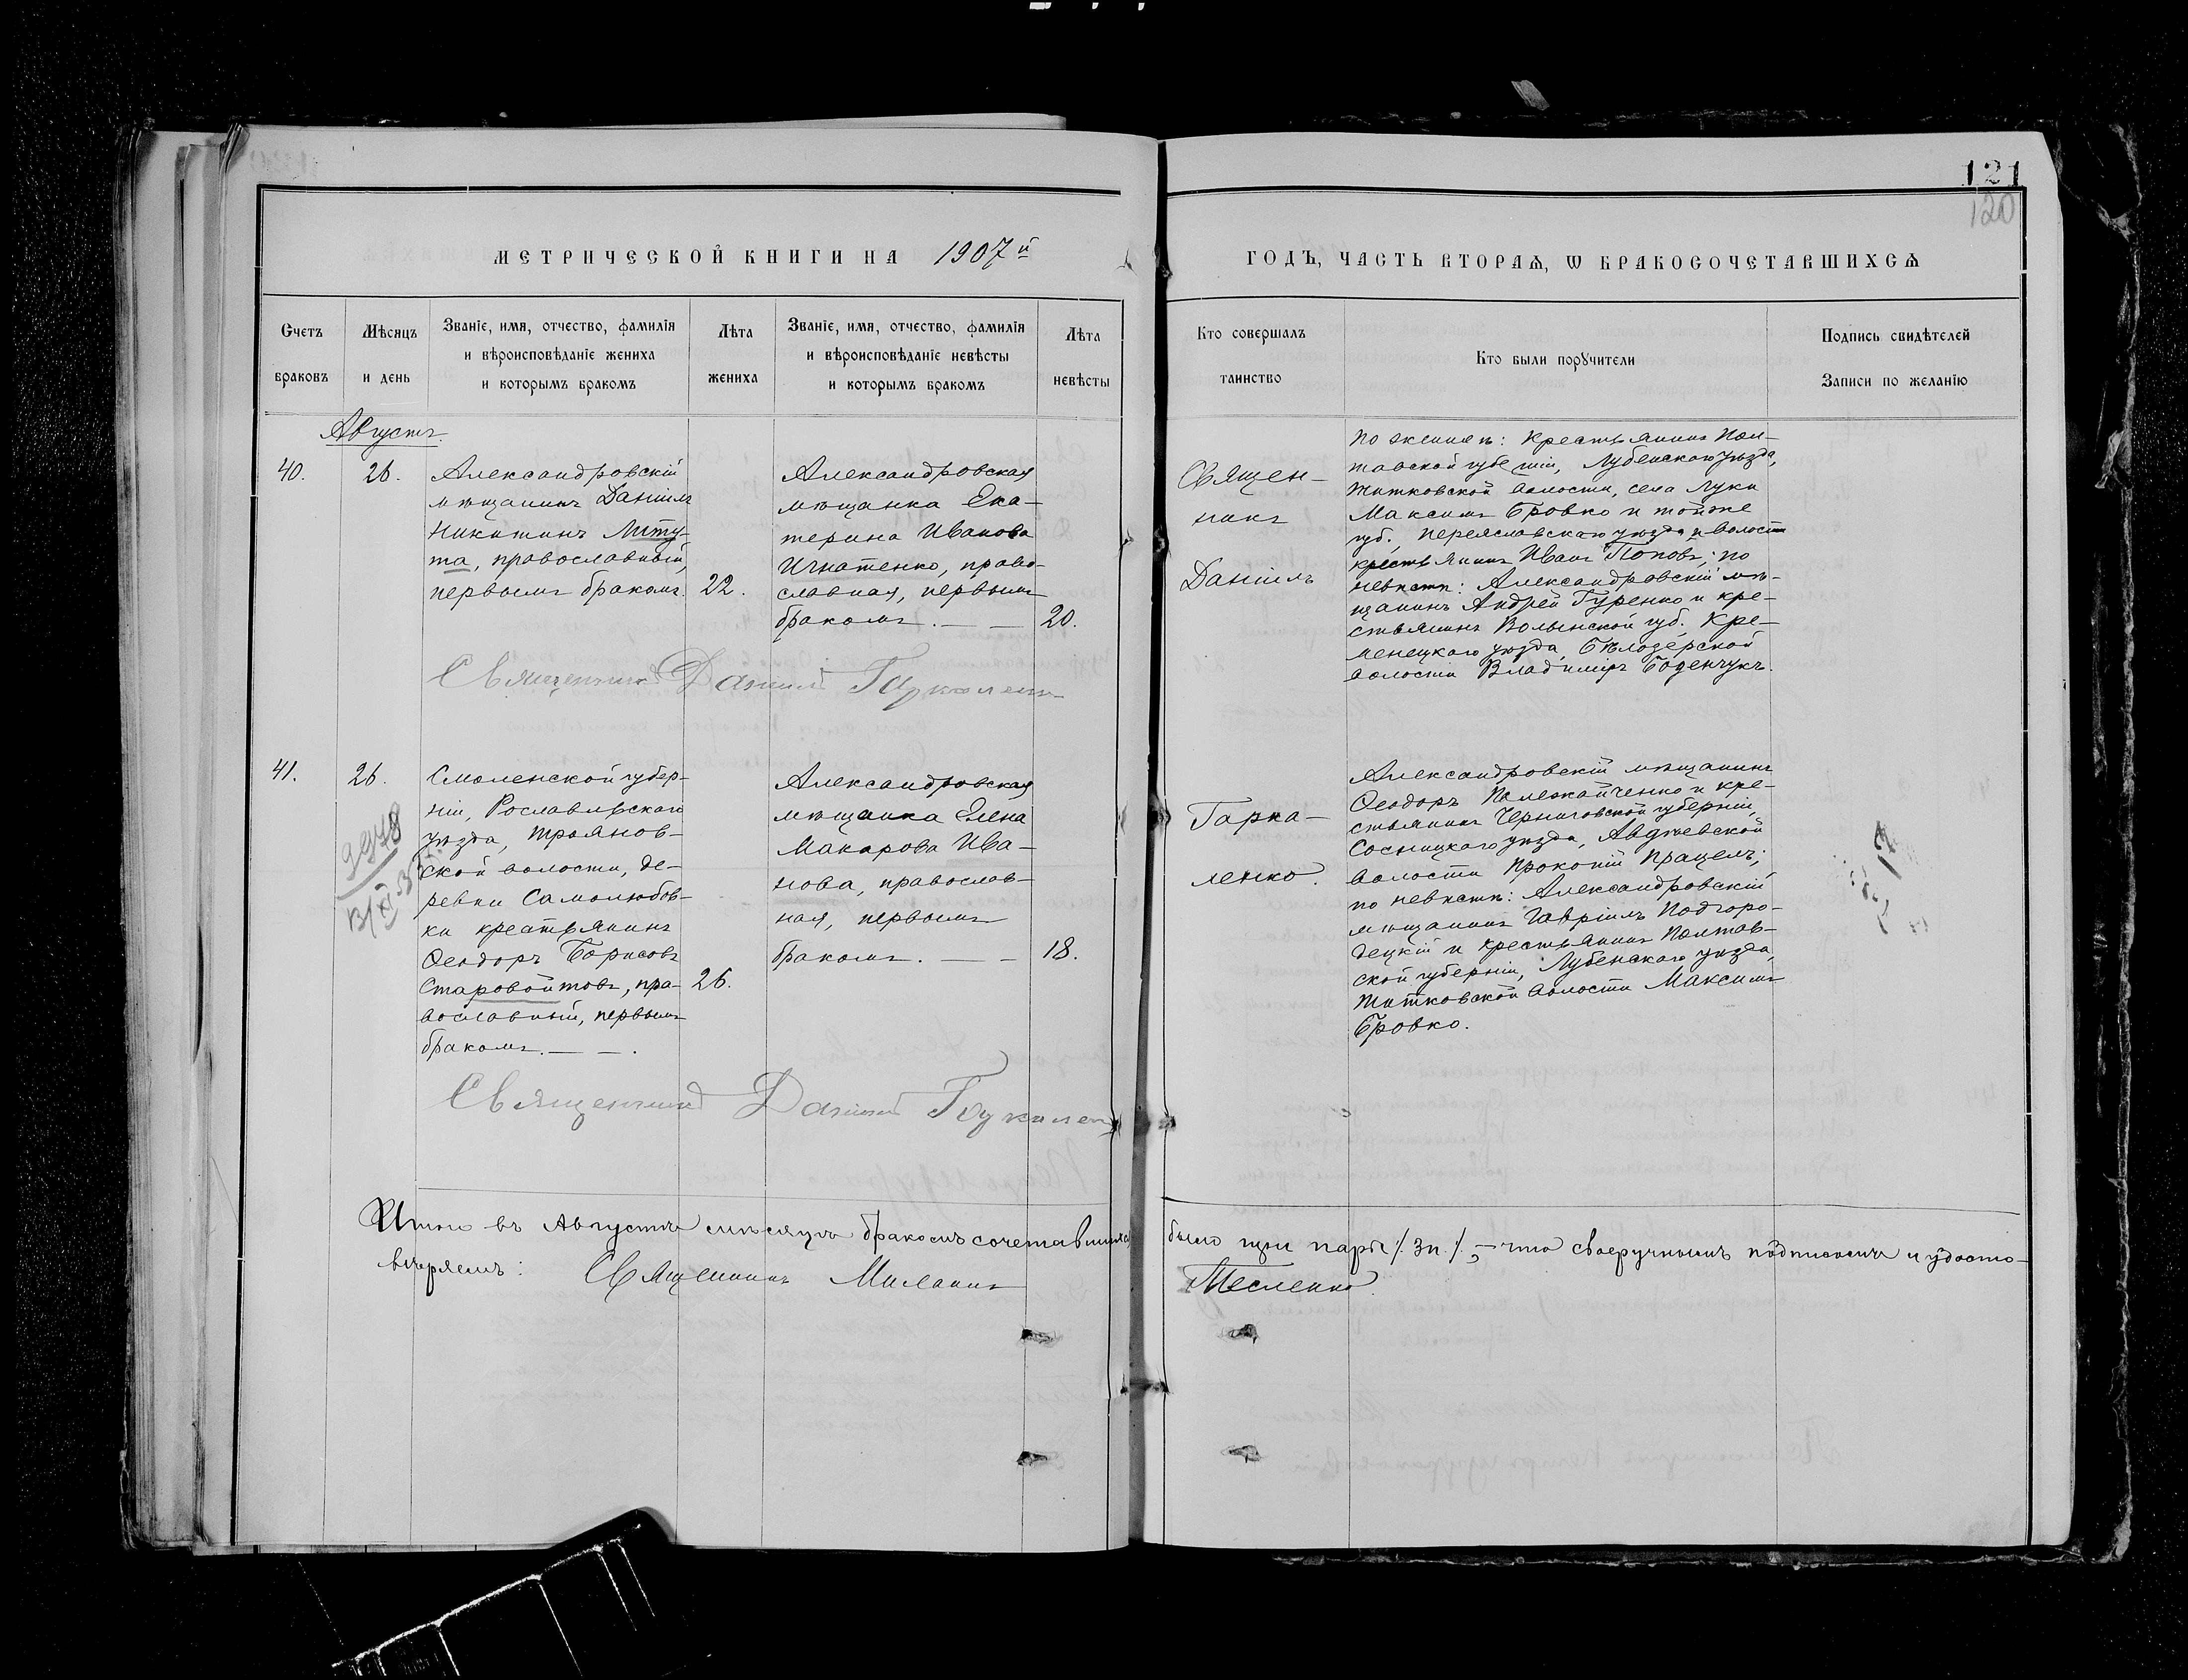 121
120
МЕТРИЧЕСКОЙ КНИГИ НА 1907й
ГОДЪ, ЧАСТЬ ВТОРАѦ, Ѡ БРАКОСОЧЕТАВШИХСѦ
Счетъ
браковъ
Мѣсяцъ
и день
Званіе, имя, отчество, фамилія
и вѣроисповѣданіе жениха
и которымъ бракомъ
Лѣта
жениха
Званіе, имя, отчество, фамилія
и вѣроисповѣданіе невѣсты
и которымъ бракомъ
Лѣта
невѣсты
Кто совершалъ
таинство
Кто были порꙋчители
Подпись свидѣтелей
Записи по желанію
Августъ.
40.
26.
Александровскій
мѣщанинъ Даніилъ
Никитинъ Миту-
та, православный,
первымъ бракомъ.
22.
Александровская
мѣщанка Ека-
терина Иванова
Игнатенко, право-
славная, первымъ
бракомъ. — —
20.
Священ-
никъ
Даніилъ
по женихѣ: крестьянинъ Пол-
тавской губерніи, Лубенскаго уѣзда,
Тишковской волости, села Луки
Максимъ Бровко и той же
губ. Переяславскаго уѣзда и волости
крестьянинъ Иванъ Поповъ; по
невѣстѣ: Александровскій мѣ-
щанинъ Андрей Гуренко и кре-
стьянинъ Волынской губ. Кре-
менецкаго уѣзда, Бѣлозерской
волости Владиміръ Боденчукъ.
Священникъ Даніилъ Гаркаленко
41.
26.
9978
Смоленской губер-
ніи, Рославльскаго
уѣзда, Троянов-
ской волости, де-
ревни Самолюбов-
ки крестьянинъ
Ѳеодоръ Борисовъ
Старовойтовъ, пра-
вославный, первымъ
бракомъ. — — .
26.
Александровская
мѣщанка Елена
Макарова Ива-
нова, православ-
ная, первымъ
бракомъ. — —
18.
Гарка-
ленко.
Александровскій мѣщанинъ
Ѳеодоръ и кре-
стьянинъ Черниговской губерніи,
Сосницкаго уѣзда, Авдѣевской
волости Прокопій Працель;
по невѣстѣ: Александровскій
мѣщанинъ Гавріилъ Подгоро-
децкій и крестьянинъ Полтав-
ской губерніи, Лубенскаго уѣзда,
Тишковской волости Максимъ
Бровко.
Священникъ Даніилъ Гаркаленко
Итого въ Августѣ мѣсяцѣ бракомъ сочетавшихся было три пары /. 3 п. /. — что своеручнымъ подписомъ и удосто-
вѣряемъ: Священникъ Тесленко.